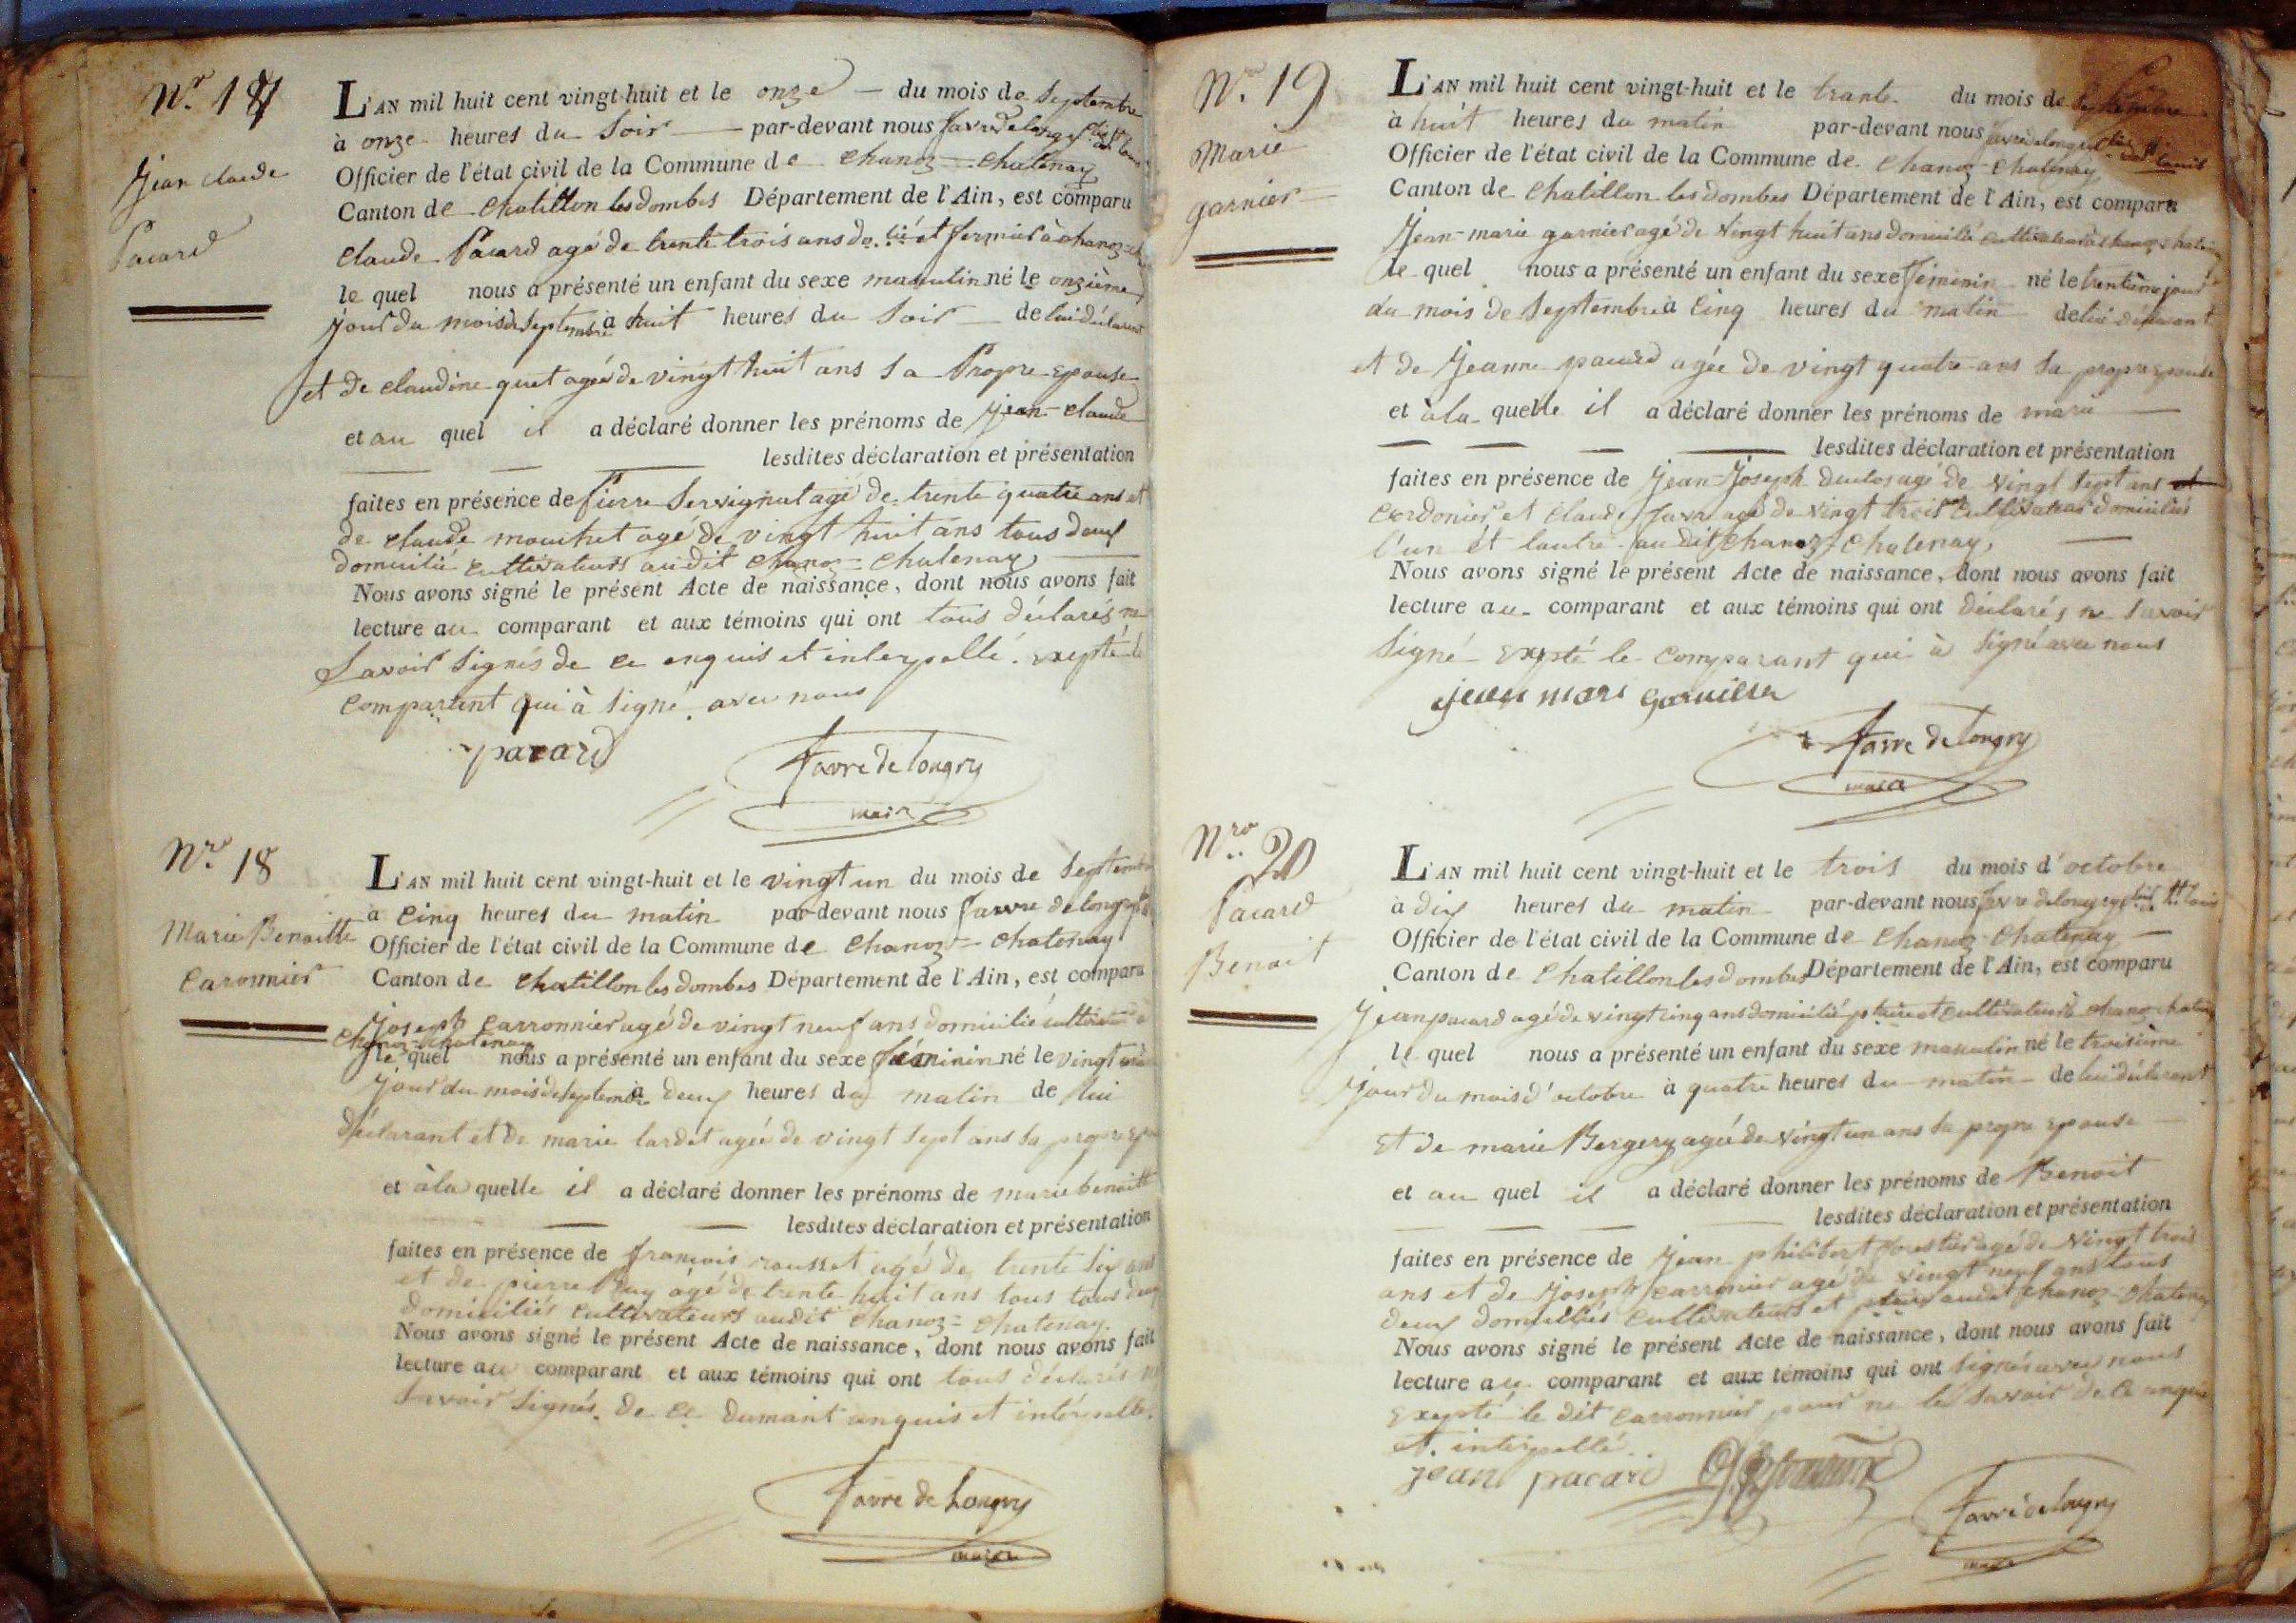 Nº 17
Jean claude
Pacard
L'AN mil huit cent vingt-huit et le onze — du mois de Septembre
à onze heures du Soir — par-devant nous favre de longry
Officier de l'état civil de la Commune de Chanoz-Chatenay
Canton de Chatillon les dombes Département de l'Ain, est comparu
Claude Pacard agé de trente trois ans et fermier à chanoz
le quel nous a présenté un enfant du sexe masculin né le onzième
jour du mois de Septembre à huit heures du Soir — de lui déclarant
et de claudine quet agée de vingt huit ans Sa Propre Epouse
et au quel il a déclaré donner les prénoms de Jean-Claude
lesdites déclaration et présentation
faites en présence de Pierre Servignat agé de trente quatre ans et
de claude mouchet agé de vingt huit ans tous deux
domicilié cultivateurs audit Chanoz-Chatenay
Nous avons signé le présent Acte de naissance, dont nous avons fait
lecture au comparant et aux témoins qui ont tous déclarés ne
Savoir Signés de ce enquis et interpellé. Exepté le
Comparant qui à Signé avec nous
pacard
favre de longry
maire
Nº 18
Marie Benoitte
Caronnier
L'AN mil huit cent vingt-huit et le vingt un du mois de Septembre
à Cinq heures du matin par-devant nous favre de longry
Officier de l'état civil de la Commune de Chanoz-Chatenay
Canton de Chatillon les dombes Département de l'Ain, est comparu
Joseph Carronnier agé de vingt neuf ans domicilié cultivateur à
Chanoz-Chatenay
le quel nous a présenté un enfant du sexe féminin né le vingt
jour du mois de Septembre à deux heures du matin de lui
déclarant et de marie lardet agée de vingt Sept ans Sa propre
et à la quelle il a déclaré donner les prénoms de marie benoitte
lesdites déclaration et présentation
faites en présence de françois rousset agé de trente Six ans
et de pierre Puy agé de trente huit ans tous tous deux
domiciliés cultivateurs audit Chanoz-Chatenay.
Nous avons signé le présent Acte de naissance, dont nous avons fait
lecture au comparant et aux témoins qui ont tous déclarés ne
Savoir Signés. de ce dumant anquis et intérpellés.
favre de Longry
maire
Nº 19
Marie
garnier
L'AN mil huit cent vingt-huit et le trante du mois de Septembre
à huit heures du matin par-devant nous favre de longry
Officier de l'état civil de la Commune de Chanoz-Chatenay
Canton de Chatillon les dombes Département de l'Ain, est comparu
Jean-marie garnier agé de vingt huit ans domicilié cultivateur à chanoz
le quel nous a présenté un enfant du sexe féminin né le trentième jour
du mois de Septembre à Cinq heures du matin de lui déclarant
et de Jeanne pacard agée de vingt quatre ans Sa propre épouse
et à la quelle il a déclaré donner les prénoms de marie
lesdites déclaration et présentation
faites en présence de Jean-Joseph duclos agé de vingt Sept ans et
Cordonier et Claude favre agé de vingt trois ans Cultivateur domiciliés
l'un et lautre audit Chanoz-Chatenay,
Nous avons signé le présent Acte de naissance, dont nous avons fait
lecture au comparant et aux témoins qui ont déclarés ne Savoir
Signé Exepté le Comparant qui à Signé avec nous
jean mari garnier
favre de longry
maire
Nro 20
Pacard
Benoit
L'AN mil huit cent vingt-huit et le trois du mois d'octobre
à dix heures du matin par-devant nous favre de longry
Officier de l'état civil de la Commune de Chanoz-Chatenay
Canton de Chatillon les dombes Département de l'Ain, est comparu
Jean pacard agé de vingt cinq ans domicilié et cultivateur à chanoz
le quel nous a présenté un enfant du sexe masculin né le troisième
Jour du mois d'octobre à quatre heures du matin de lui déclarant
Et de marie Bergery agée de vingt un ans Sa propre Epouse
et au quel il a déclaré donner les prénoms de Benoit
lesdites déclaration et présentation
faites en présence de Jean philibert agé de vingt trois
ans et de Joseph Carronnier agé de vingt neuf ans tous
deux domiciliés cultivateurs et audit Chanoz-Chatenay
Nous avons signé le présent Acte de naissance, dont nous avons fait
lecture au comparant et aux témoins qui ont Signés avec nous
Exepté le dit Carronnier pour ne le Savoir de ce anquis
et interpellé.
jean pacard
favre de longry
maire